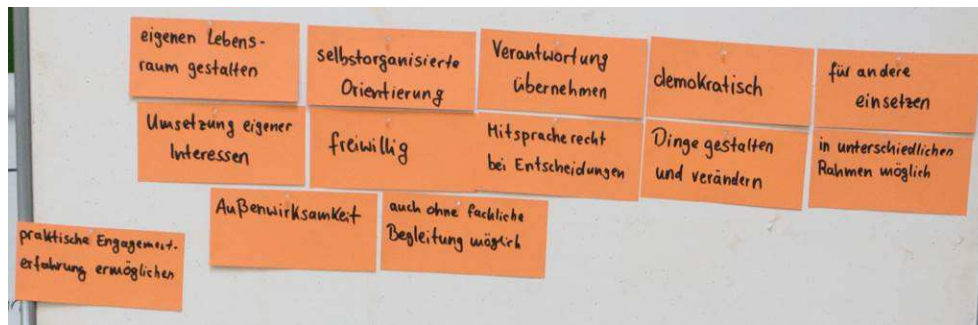 eigenen Lebens-
raum gestalten
selbstorganisierte
Orientierung
Verantwortung
übernehmen
demokratisch
für andere
einsetzen
Umsetzung eigener
Interessen
freiwillig
Mitspracherecht
bei Entscheidungen
Dinge gestalten
und verändern
in unterschiedlichen
Rahmen möglich
Außenwirksamkeit
auch ohne fachliche
Begleitung möglich
praktische Engagement-
erfahrung ermöglichen